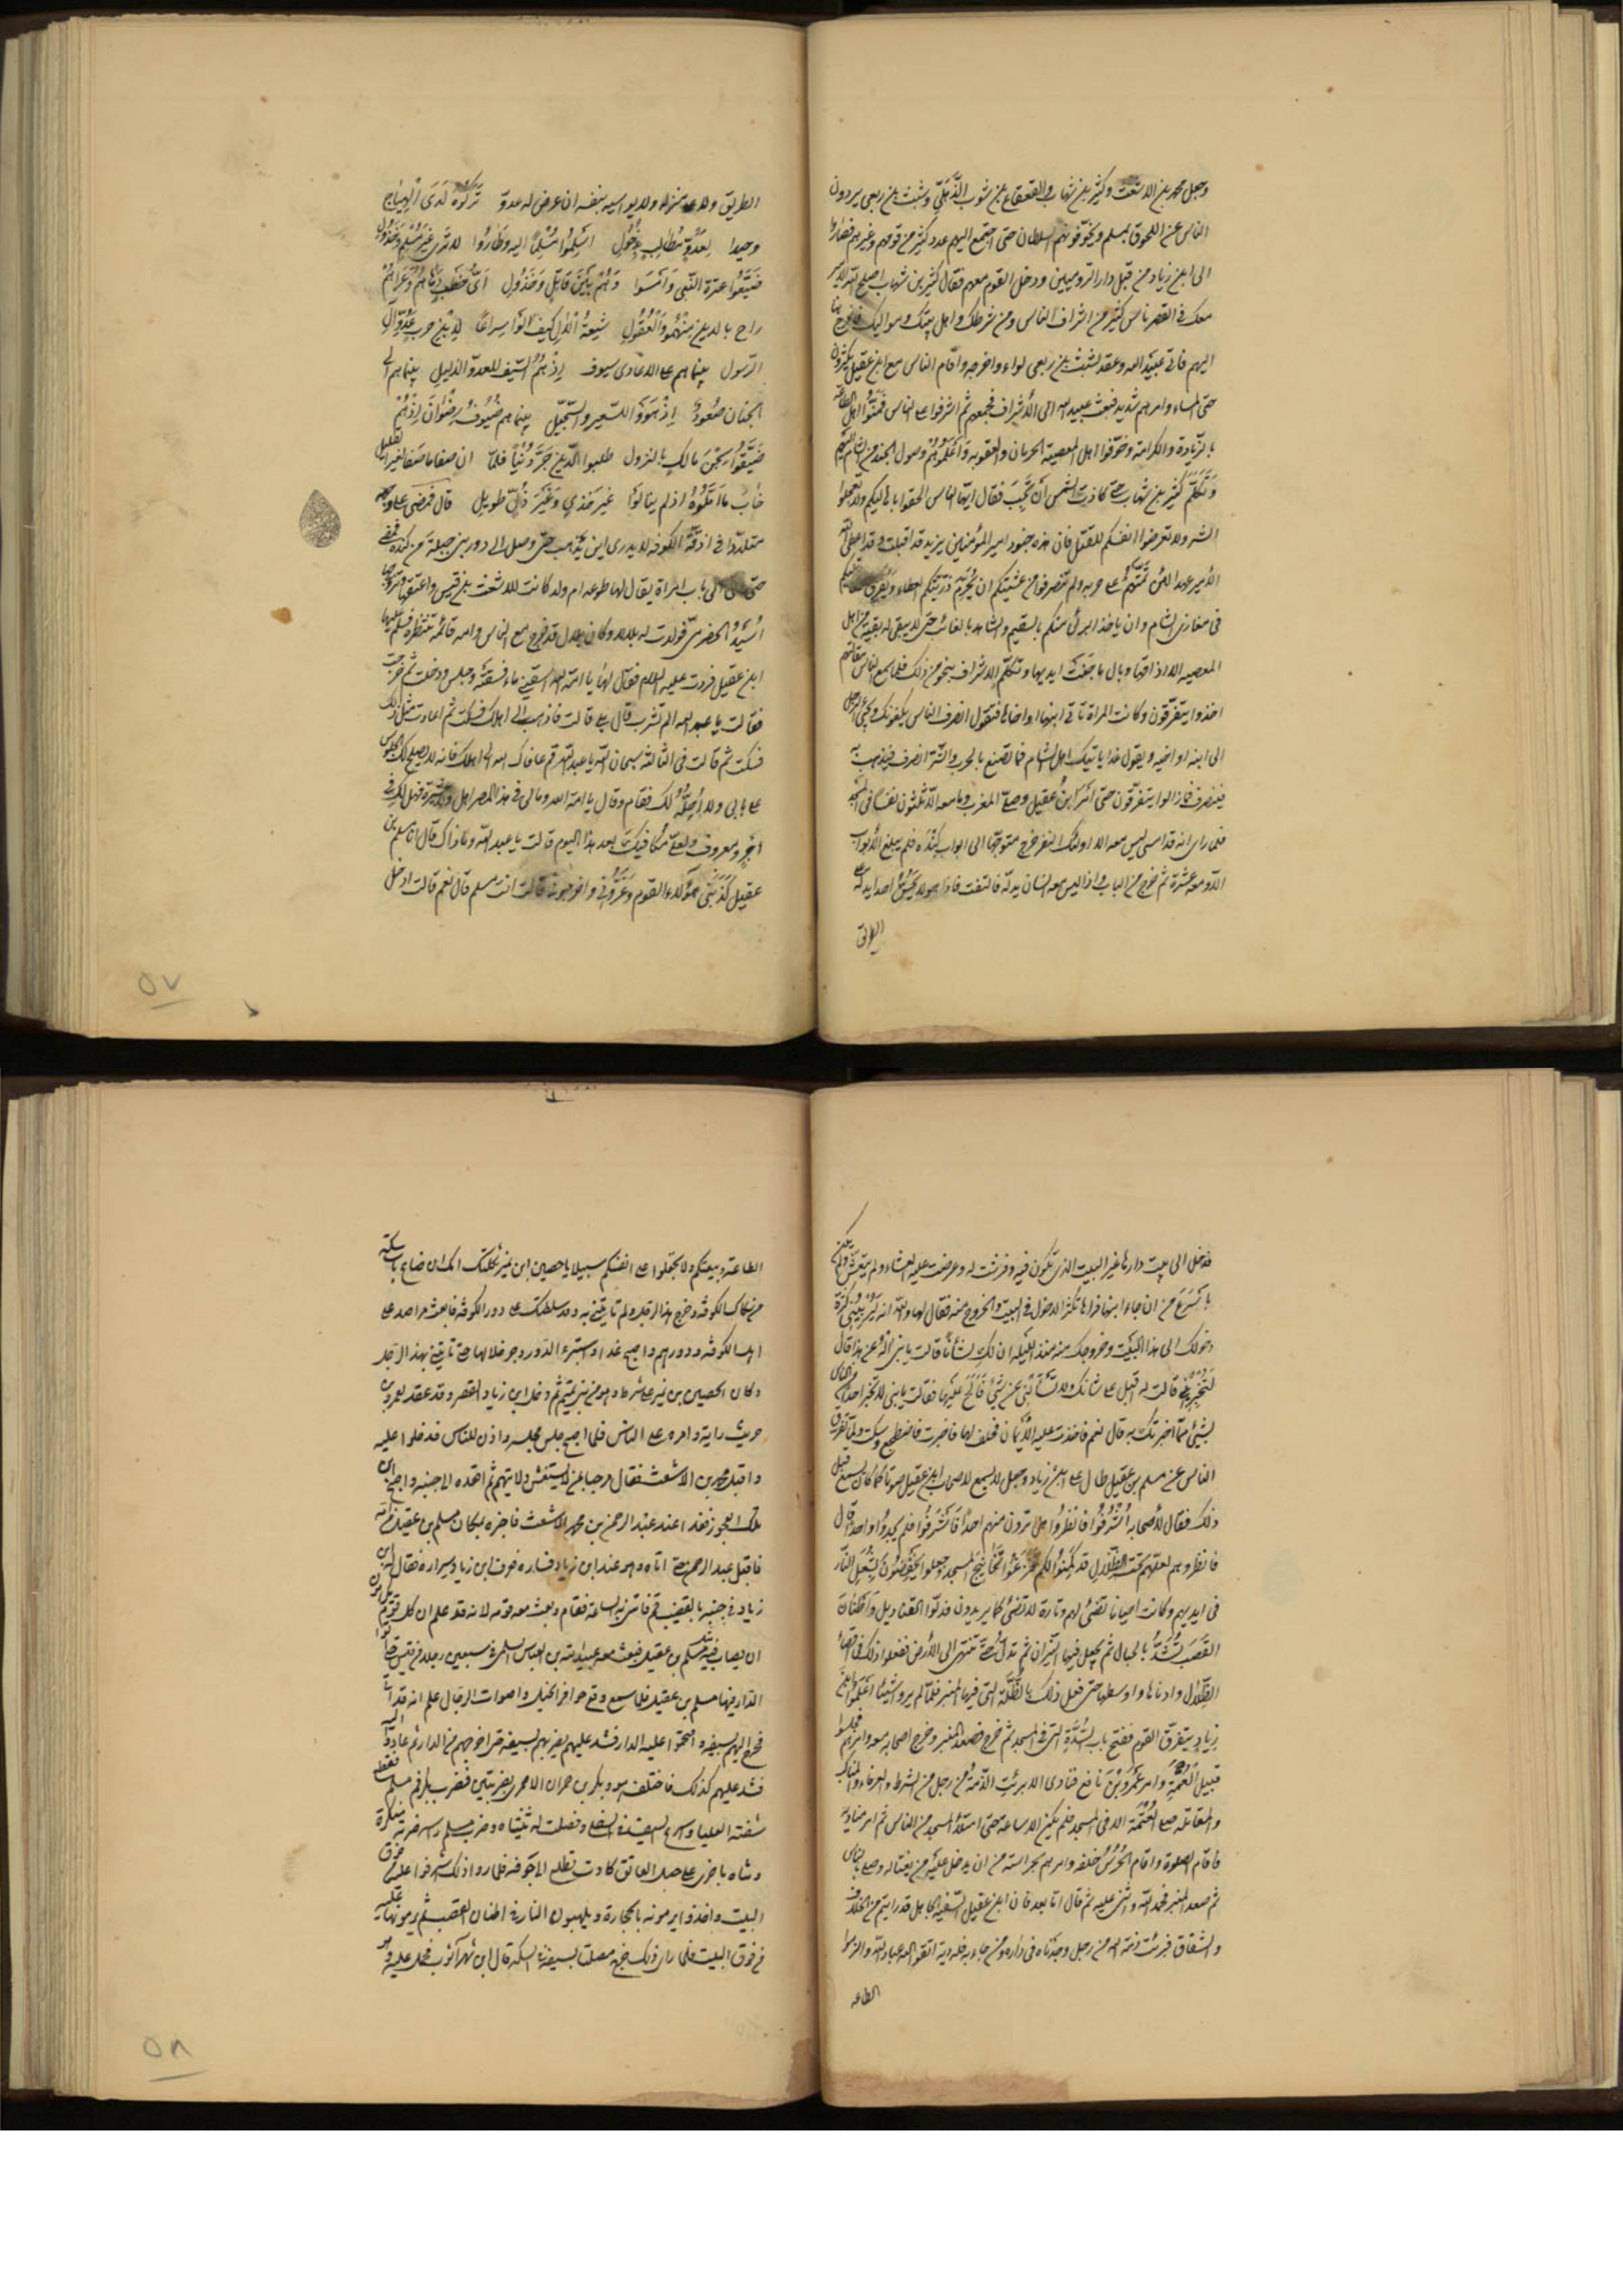 وجعل محمد بن الاشعث وكثير بن شهاب والقعقاع بن شور الذهلي وشبث بن ربعي يردون
الناس عن اللحوق بمسلم ويخوفونهم السلطان حتى اجتمع اليهم عدد كثير من قومهم وغيرهم فصاروا
الى ابن زياد من قبل دار الروميين ودخل القوم معهم فقال كثير بن شهاب اصلح الله الامير
معك في القصر ناس كثير من اشراف الناس ومن شرطك واهل بيتك ومواليك فاخرج بنا
اليهم فابى عبيد الله وعقد لشبث بن ربعي لواء واخرجه واقام الناس مع ابن عقيل يكثرون
حتى المساء وامرهم شديد فبعث عبيد الله الى الأشراف فجمعهم ثم اشرفوا على الناس فمنوا اهل الطاعة
بالزيادة والكرامة وخوفوا اهل المعصية الحرمان والعقوبة وأعلموهم وصول الجند من الشام اليهم
وتكلم كثير بن شهاب حتى كادت الشمس أن تجب فقال ايها الناس الحقوا باهاليكم ولا تعجلوا
الشر ولا تعرضوا انفسكم للقتل فان هذه جنود امير المؤمنين يزيد قد اقبلت وقد اعطى الله
الأمير عهدا لئن تممتم على حربه ولم تنصرفوا من عشيتكم ان يحرم ذريتكم العطاء ويفرق مقاتلتكم
في مغازي الشام وان ياخذ البرئ منكم بالسقيم والشاهد بالغائب حتى لا يبقى له بقية من اهل
المعصية الا اذاقها وبال ما جنت ايديها وتكلم الاشراف بنحو من ذلك فلما سمع الناس مقالتهم
اخذوا يتفرقون وكانت المراة تاتي ابنها او اخاها فتقول انصرف الناس يكفونك ويجئ الرجل
الى ابنه او اخيه ويقول غدا ياتيك اهل الشام فما تصنع بالحرب والشر انصرف فيذهب به
فينصرف فما زالوا يتفرقون حتى امسى ابن عقيل وصلى المغرب وما معه الا ثلثون نفسا في المسجد
فلما راى انه قد امسى ليس معه الا اولئك النفر خرج متوجها الى ابواب كندة فلم يبلغ الأبواب
الا ومعه عشرة ثم خرج من الباب واذا ليس معه انسان يدله فالتفت فاذا هو لا يحس احدا يدله على
الطريق
الطريق ولا على منزله ولا يواسيه بنفسه ان عرض له عدو تركوه لدى الهياج
وحيدا لعدو مطالب بذحول اسلموا مسلما اليه وطاروا
ضيعوا عترة النبي وامسوا وهم بين قاتل وخذول
راح بالدين منهم والعقول شيعة الال كيف الوا سراعا لابن حرب عدو ال
الرسول بينما هم على الاعادي سيوف اذ هم السيف للعدو الذليل بينما هم الى
الجنان صعود اذ هووا للسعير والسجيل بينما هم ضيوف رضوان اذ هم
ضيقوا سجن مالك بالنزول طلبوا
خاب ما املوه اذ لم ينالوا غير خذي وغير ذل طويل قال فمضى على وجهه
متلددا في ازقة الكوفة لا يدرى اين يذهب حتى وصل الى دور بني جبلة من كندة فمضى
حتى الى باب امراة يقال لها طوعة ام ولد كانت للاشعث بن قيس واعتقها وتزوجها
أسيد الحضرمي فولدت له بلالا وكان بلال قد خرج مع الناس وامه قائمة تنتظره فسلم عليها
ابن عقيل فردت عليه السلام فقال لها يا امة الله اسقيني ماء فسقته وجلس ودخلت ثم خرجت
فقالت يا عبد الله الم تشرب قال بلى قالت فاذهب الى اهلك فسكت ثم اعادت مثل ذلك
فسكت ثم قالت في الثالثة سبحان الله يا عبد الله قم عافاك الله الى اهلك فانه لا يصلح لك الجلوس
على بابي ولا أحله لك فقام وقال يا امة الله ومالي في هذا المصر اهل ولا عشيرة فهل لك في
اجر ومعروف ولعلي مكافيك بعد هذا اليوم قالت يا عبد الله وما ذاك قال انا مسلم بن
عقيل كذبني هؤلاء القوم وغروني واخرجوني قالت انت مسلم قال نعم قالت ادخل
فدخل الى بيت دارها غير البيت الذي تكون فيه وفرشت له وعرضت عليه العشاء ولم يتعش ولم يكن
باسرع من ان جاء ابنها فراها تكثر الدخول في البيت والخروج منه فقال لها والله انه ليريبني كثرة
دخولك الى هذا البيت وخروجك منه منذ الليلة ان لك لشأنا قالت يا بني اله عن هذا قال
لتخبريني قالت له اقبل على شانك ولا تسألني عن شئ فألح عليها فقالت يا بني لا تخبر احدا من الناس
بشئ مما اخبرتك به قال نعم فاخذت عليه الأيمان فحلف لها فاخبرت فاضطجع وسكت ولما تفرق
الناس عن مسلم بن عقيل طال على ابن زياد وجعل لا يسمع لاصحاب ابن عقيل صوتا كما كان يسمع قبل
ذلك فقال لأصحابه أشرفوا فانظروا هل ترون منهم احدا فاشرفوا فلم يجدوا احدا قال
فانظروهم لعلهم تحت الظلال قد كمنوا لكم فنزعوا تخاتج المسجد وجعلوا يخفضون بشعل النار
في ايديهم وكانت احيانا تضئ لهم وتارة لا تضئ كما يريدون فدلوا القناديل واطنان
القصب تشد بالحبال ثم يجعل فيها النيران ثم تدلى حتى تنتهى الى الأرض ففعلوا ذلك في اقصى
الظلال وادناها واوسطها حتى فعل ذلك بالظلة التي فيها المنبر فلما لم يروا شيئا اعلموا ابن
زياد بتفرق القوم ففتح باب السدة التي في المسجد ثم خرج فصعد المنبر وخرج اصحابه معه وامرهم فجلسوا
قبيل العتمة وامر عمرو بن نافع فنادى الا برئت الذمة من رجل من الشرط والعرفاء والمناكب
والمقاتلة صلى العتمة الا في المسجد فلم يكن الا ساعة حتى امتلأ المسجد من الناس ثم امر مناديه
فاقام الصلوة واقام الحرس خلفه وامرهم بحراسته من ان يدخل عليه من يغتاله وصلى بالناس
ثم صعد المنبر فحمد الله واثنى عليه ثم قال اما بعد فان ابن عقيل السفيه الجاهل قد اتى ما رايتم من الخلاف
والشقاق فبرئت ذمة الله من رجل وجدناه في داره ومن جاء به فله ديته اتقوا الله عباد الله والزموا
الطاعة
الطاعة وبيعتكم ولا تجعلوا على انفسكم سبيلا يا حصين بن نمير ثكلتك امك ان ضاع باب سكة
من سكك الكوفة وخرج هذا الرجل ولم تاتني به وقد سلطتك على دور الكوفة فابعث مراصد على
اهل الكوفة ودورهم واصبح غدا واستبرء الدور وجس خلالها حتى تاتيني بهذا الرجل
وكان الحصين بن نمير على شرطه وهو من بني تميم ثم دخل ابن زياد القصر وقد عقد لعمرو بن
حريث راية وامره على الناس فلما اصبح جلس مجلسه واذن للناس فدخلوا عليه
واقبل محمد بن الاشعث فقال مرحبا بمن لا يستغش ولا يتهم ثم اقعده الى جنبه واصبح ابن
تلك العجوز فغدا الى عبد الرحمن بن محمد الاشعث فاخبره بمكان مسلم بن عقيل من امه
فاقبل عبد الرحمن حتى اتى اباه وهو عند ابن زياد فساره فعرف ابن زياد سراره فقال له ابن
زياد في جنبه بالقضيب قم فاتني به الساعة فقام وبعث معه قومه لانه قد علم ان كل قوم يكرهون
ان يصاب فيهم مسلم بن عقيل فبعث معه عبيد الله بن العباس السلمي في سبعين رجلا من قيس حتى اتوا
الدار فيها مسلم بن عقيل فلما سمع وقع حوافر الخيل واصوات الرجال علم انه قد اتى
فخرج اليهم بسيفه واقتحموا عليه الدار فشد عليهم يضربهم بسيفه حتى اخرجهم من الدار ثم عادوا اليه
فشد عليهم كذلك فاختلف هو وبكر بن حمران الاحمري بضربتين فضرب بكر فم مسلم فقطع
شفته العليا واسرع السيف في السفلى وفصلت له ثنيتاه وضرب مسلم راسه ضربة منكرة
وثناه باخرى على حبل العاتق كادت تطلع الى جوفه فلما راوا ذلك اشرفوا عليه من فوق
البيت واخذوا يرمونه بالحجارة ويلهبون النار في اطنان القصب ثم يرمونها عليه
من فوق البيت فلما راى ذلك خرج مصلتا بسيفه في السكة قال ابن شهر آشوب